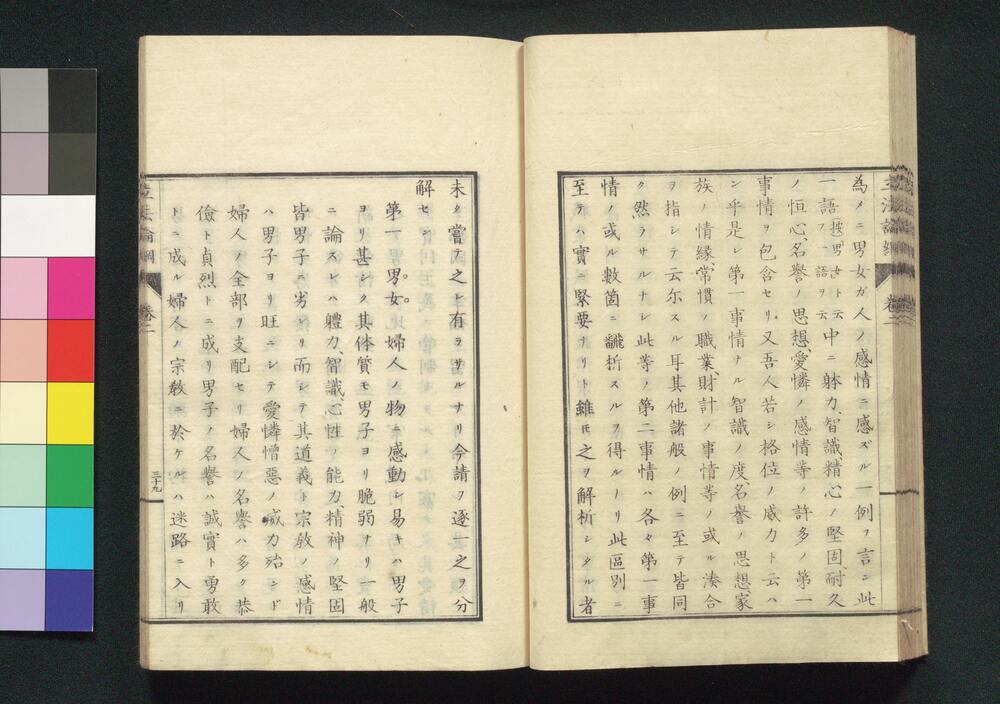 為メニ男女ガ人ノ感情ニ感ズル一例ヲ言ン此
一語按男女ト云フ一語ヲ云中ニ躰力、智識、精心ノ堅固、耐久
ノ恒心、名譽ノ思想、愛憐ノ感情等ノ許多ノ第一
事情ヲ包含セリ。又吾人若シ格位ノ威力ト云ハ
ン乎是レ第一事情ナル智識ノ度、名譽ノ思想、家
族ノ情緣、常慣ノ職業、財計ノ事情等ノ或ル湊合
ヲ指シテ云尓スル耳其他諸般ノ例ニ至テ皆同
ク然ラサルナシ此等ノ第二事情ハ各々第一事
情ノ或ル數箇ニ析スルヿヲ得ルヿリ此區別ニ
至テハ實ニ緊要ナリト雖𪜈之ヲ解析シタル者
未タ嘗テ之レ有ラサルナリ今請フ逐一之ヲ分
解セン
第一男女。婦人ノ物ニ感動シ易キハ男子
ヨリ甚シク其体質モ男子ヨリ脆弱ナリ一般
ニ論スレハ軆力、智識、心性ノ能力精神ノ堅固
皆男子ニ劣レリ而シテ其道義ト宗教ノ感情
ハ男子ヨリ旺ニシテ愛憐憎惡ノ威力殆ンド
婦人ノ全部ヲ支配セリ婦人ノ名譽ハ多ク恭
儉ト貞烈トニ成リ男子ノ名譽ハ誠實ト勇敢
トニ成ル婦人ノ宗教ニ於ケルハ迷路ニ入リ
立法論綱
卷二
三十九